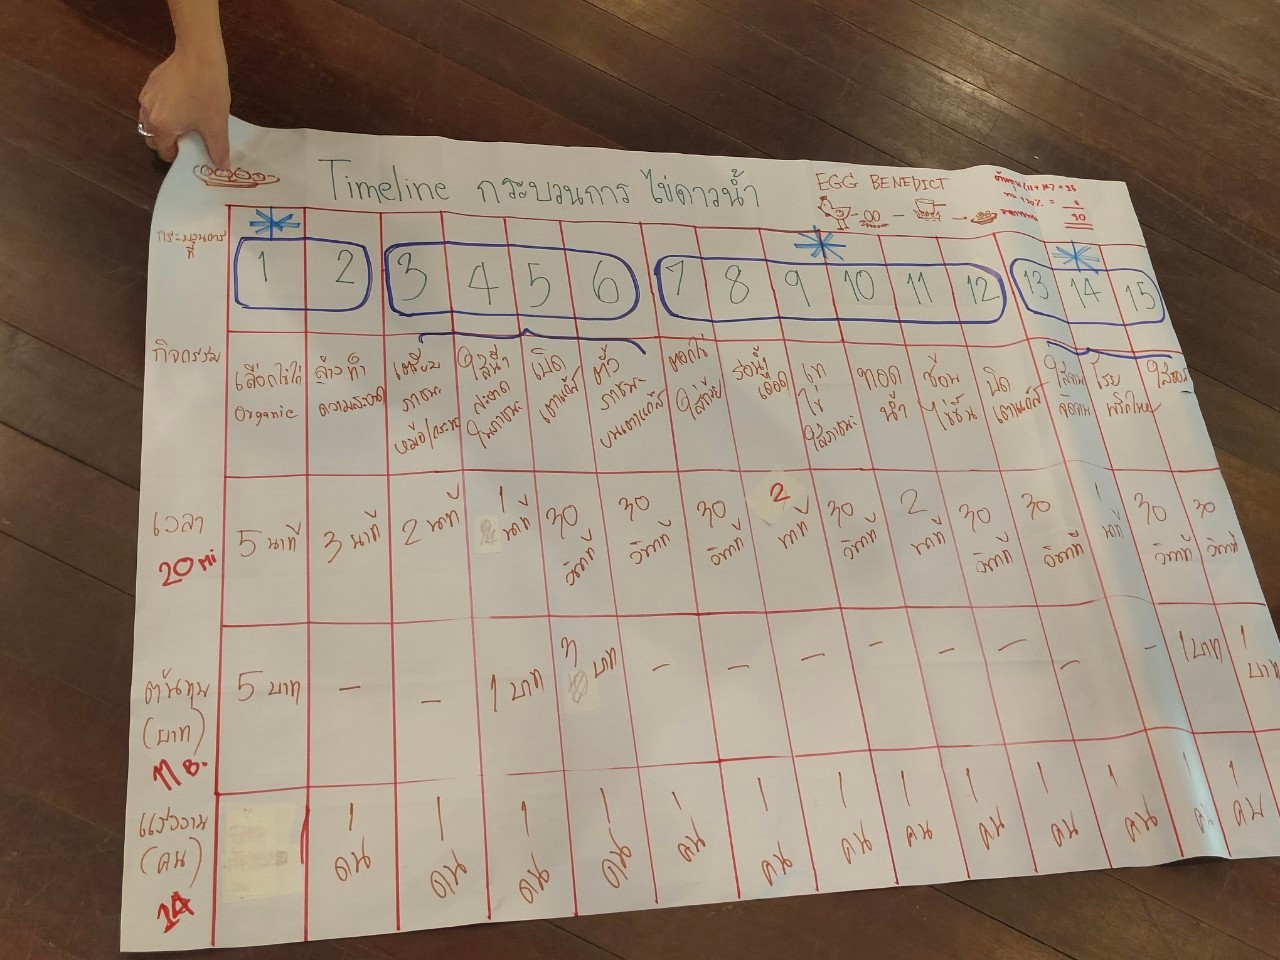 Timeline กระบวนการ ไข่ดาวน้ำ
EGG BENEDICT
ต้นทุน (11+14) = 25
30
กระบวนการ
ที่
1 2 3 4 5 6 7 8 9 10 11 12 13 14 15
กิจกรรม
เลือกไข่ไก่
Organic
ล้างทำ
ความสะอาด
เตรียม
ภาชนะ
หม้อ/กระทะ
ใส่น้ำ
สะอาด
ในภาชนะ
เปิด
เตาแก๊ส
ตั้ง
ภาชนะ
บนเตาแก๊ส
ตอกไข่
ใส่ถ้วย
รอน้ำ
เดือด
เท
ไข่
ใส่ภาชนะ
ทอด
น้ำ
ช้อน
ไข่ขึ้น
ปิด
เตาแก๊ส
ใส่จาน
จัดจาน
โรย
พริกไทย
ใส่ซอส
เวลา
20 mi
5 นาที
3 นาที
2 นาที
1
นาที
30
วินาที
30
วินาที
30
วินาที
2
นาที
30
วินาที
2
นาที
30
วินาที
30
วินาที
1
นาที
30
วินาที
30
วินาที
ต้นทุน
(บาท)
11 บ.
5 บาท
-
-
1 บาท
3 บาท
-
-
-
-
-
-
-
-
1 บาท
1
บาท
แรงงาน
(คน)
14
1
คน
1
คน
1
คน
1
คน
1
คน
1
คน
1
คน
1
คน
1
คน
1
คน
1
คน
1
คน
1
คน